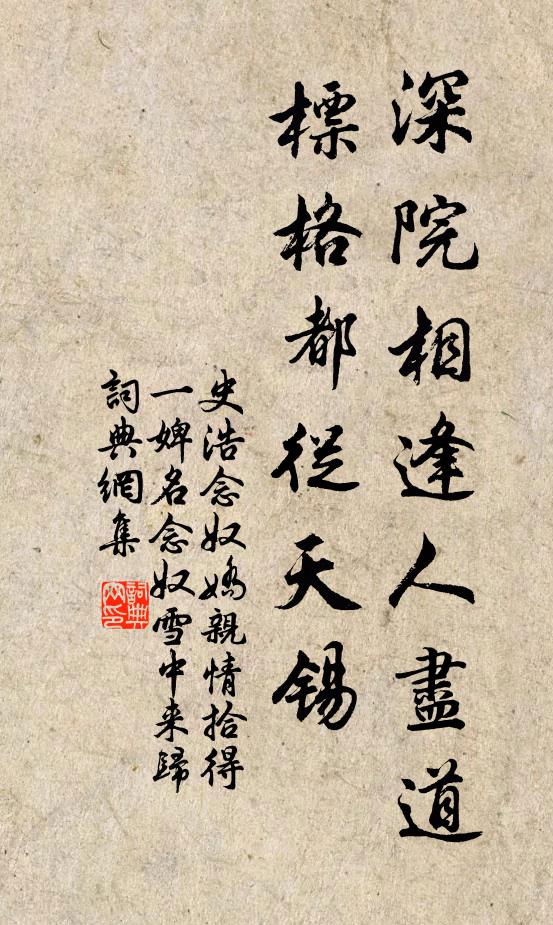 深院相逢人盡道
標格都從天錫
史浩念奴嬌親情拾得
一婢名念奴雪中来歸
詞典網集
詞典
网印